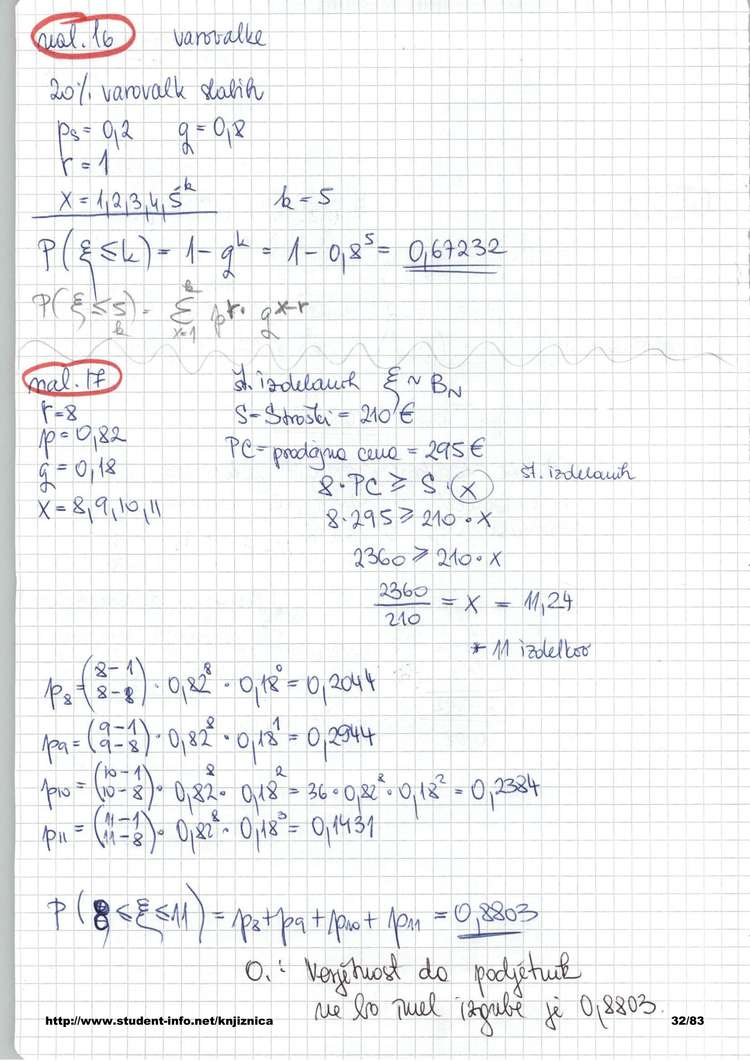 nal. 16 varovalke
20% varovalk slabih
ps = 0,2 q = 0,8
r = 1
x = 1,2,3,4,5 k k = 5
P(ξ ≤ k) = 1 - q^k = 1 - 0,8^5 = 0,67232
P(ξ ≤ 5) = Σ p^r · q^x-r
k x=1 k
nal. 17 št. izdelanih ξ ~ B_N
r = 8 S = Stroški = 210 €
p = 0,82 PC = prodajna cena = 295 €
q = 0,18 8 · PC ≥ S · x št. izdelanih
x = 8, 9, 10, 11 8 · 295 ≥ 210 · x
2360 ≥ 210 · x
2360/210 = x = 11,24
11 izdelkov
p_8 = (8-1 8-8) · 0,82^8 · 0,18^0 = 0,2044
p_9 = (9-1 9-8) · 0,82^8 · 0,18^1 = 0,2944
p_10 = (10-1 10-8) · 0,82^8 · 0,18^2 = 36 · 0,82^8 · 0,18^2 = 0,2384
p_11 = (11-1 11-8) · 0,82^8 · 0,18^3 = 0,1431
P(8 ≤ ξ ≤ 11) = p_8 + p_9 + p_10 + p_11 = 0,8803
O.: Verjetnost da podjetnik
ne bo imel izgube je 0,8803.
http://www.student-info.net/knjiznica 32/83